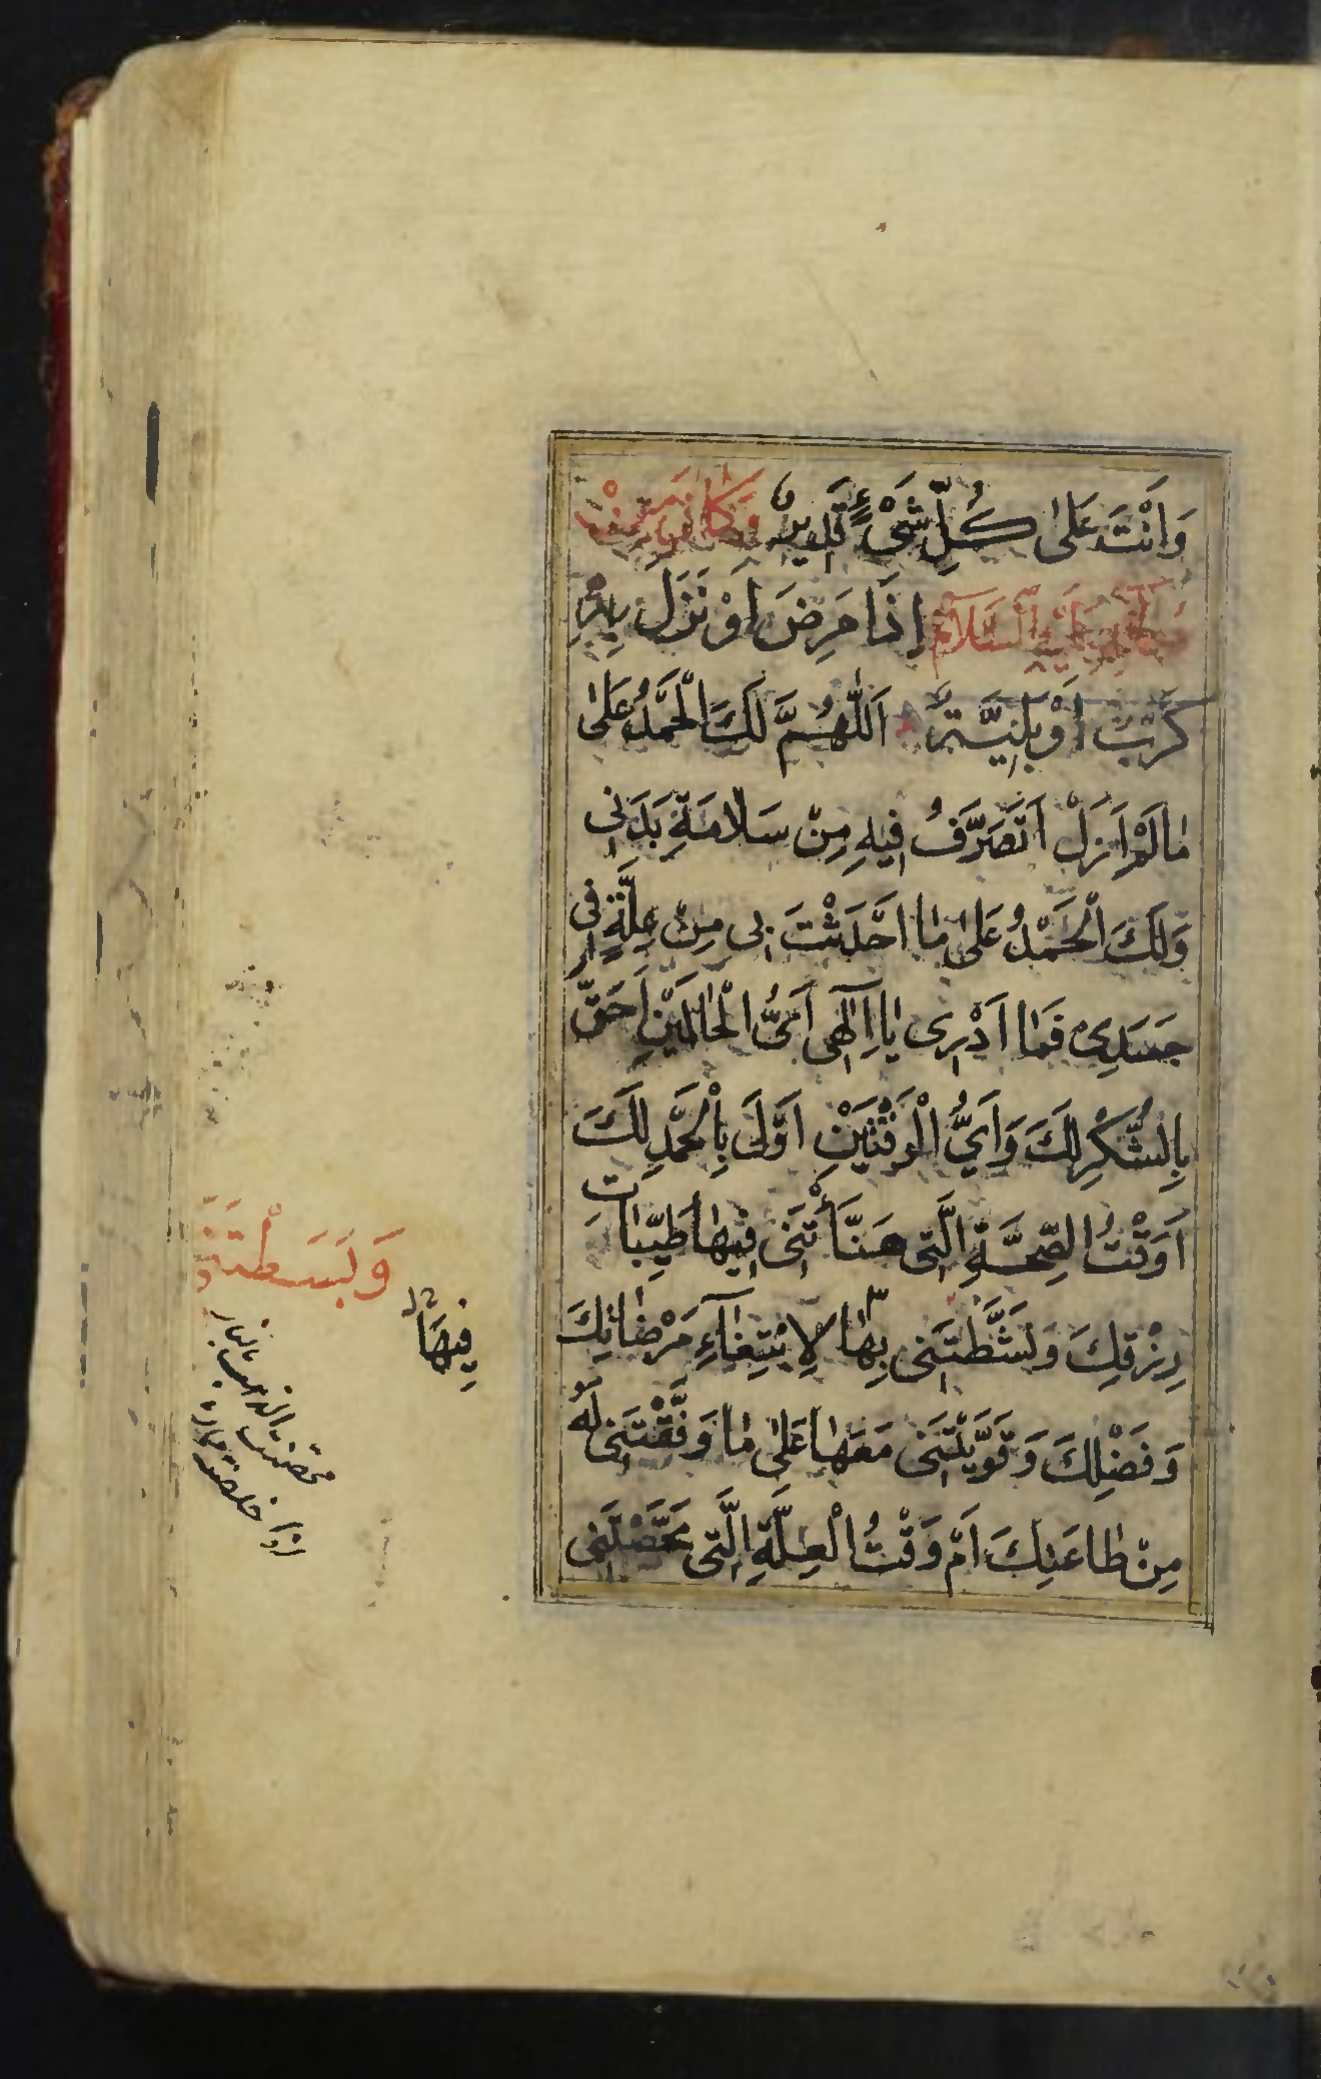 وَاَنْتَ عَلىٰ كُلِّ شَىْءٍ قَدِيرٌ وَكٰانَ مِنْ
دُعٰائِهِ عَلَيْهِ السَّلَامُ اِذَا مَرِضَ اَوْ نَزَلَ بِهِ
كَرْبٌ اَوْ بَلِيَّةٌ اَللّٰهُمَّ لَكَ الْحَمْدُ عَلىٰ
مٰا لَمْ اَزَلْ اَتَصَرَّفُ فِيهِ مِنْ سَلٰامَةِ بَدَنِى
وَلَكَ الْحَمْدُ عَلىٰ مٰا اَحْدَثْتَ بِى مِنْ عِلَّةٍ فِى
جَسَدِى فَمٰا اَدْرِى يٰا اِلٰهِى اَىُّ الْحٰالَيْنِ اَحَقُّ
بِالشُّكْرِ لَكَ وَاَيُّ الْوَقْتَيْنِ اَوْلَىٰ بِالْحَمْدِ لَكَ
اَوَقْتُ الصِّحَّةِ الَّتِى هَنَّأْتَنِى فِيهٰا طَيِّبٰاتِ
رِزْقِكَ وَنَشَّطْتَنِى بِهٰا لِابْتِغٰآءِ مَرْضٰاتِكَ
وَفَضْلِكَ وَقَوَّيْتَنِى مَعَهٰا عَلىٰ مٰا وَفَّقْتَنِى لَهُ
مِنْ طٰاعَتِكَ اَمْ وَقْتُ الْعِلَّةِ الَّتِى مَحَّصْتَنِى
وَبَسَطْتَنِى
فِيهَا